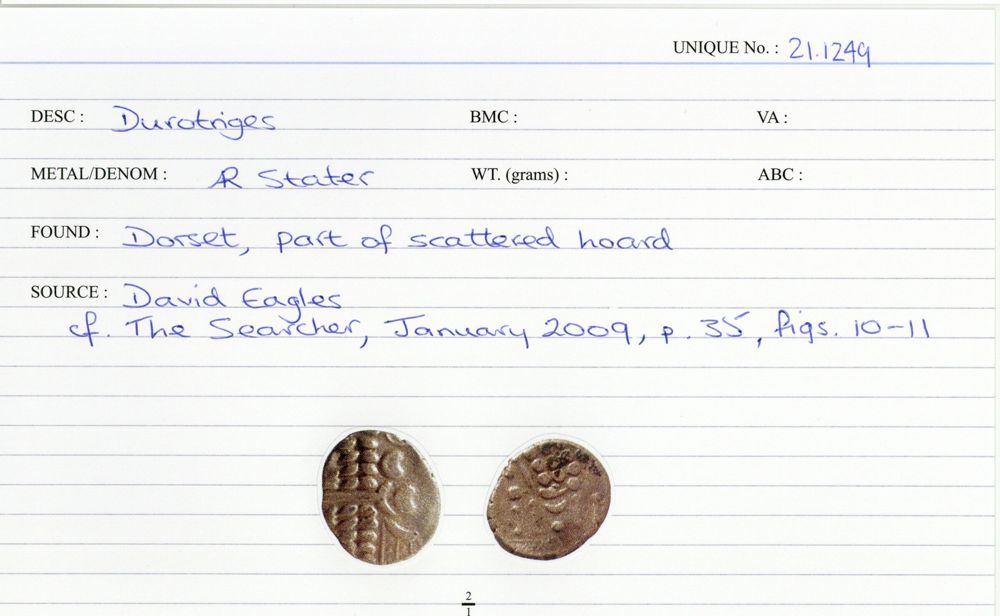 UNIQUE No. : 21.1249
DESC : Durotriges BMC : VA :
METAL/DENOM : AR Stater WT. (grams) : ABC :
FOUND : Dorset, part of scattered hoard
SOURCE : David Eagles
cf. The Searcher, January 2009, p. 35, figs. 10-11
2
1